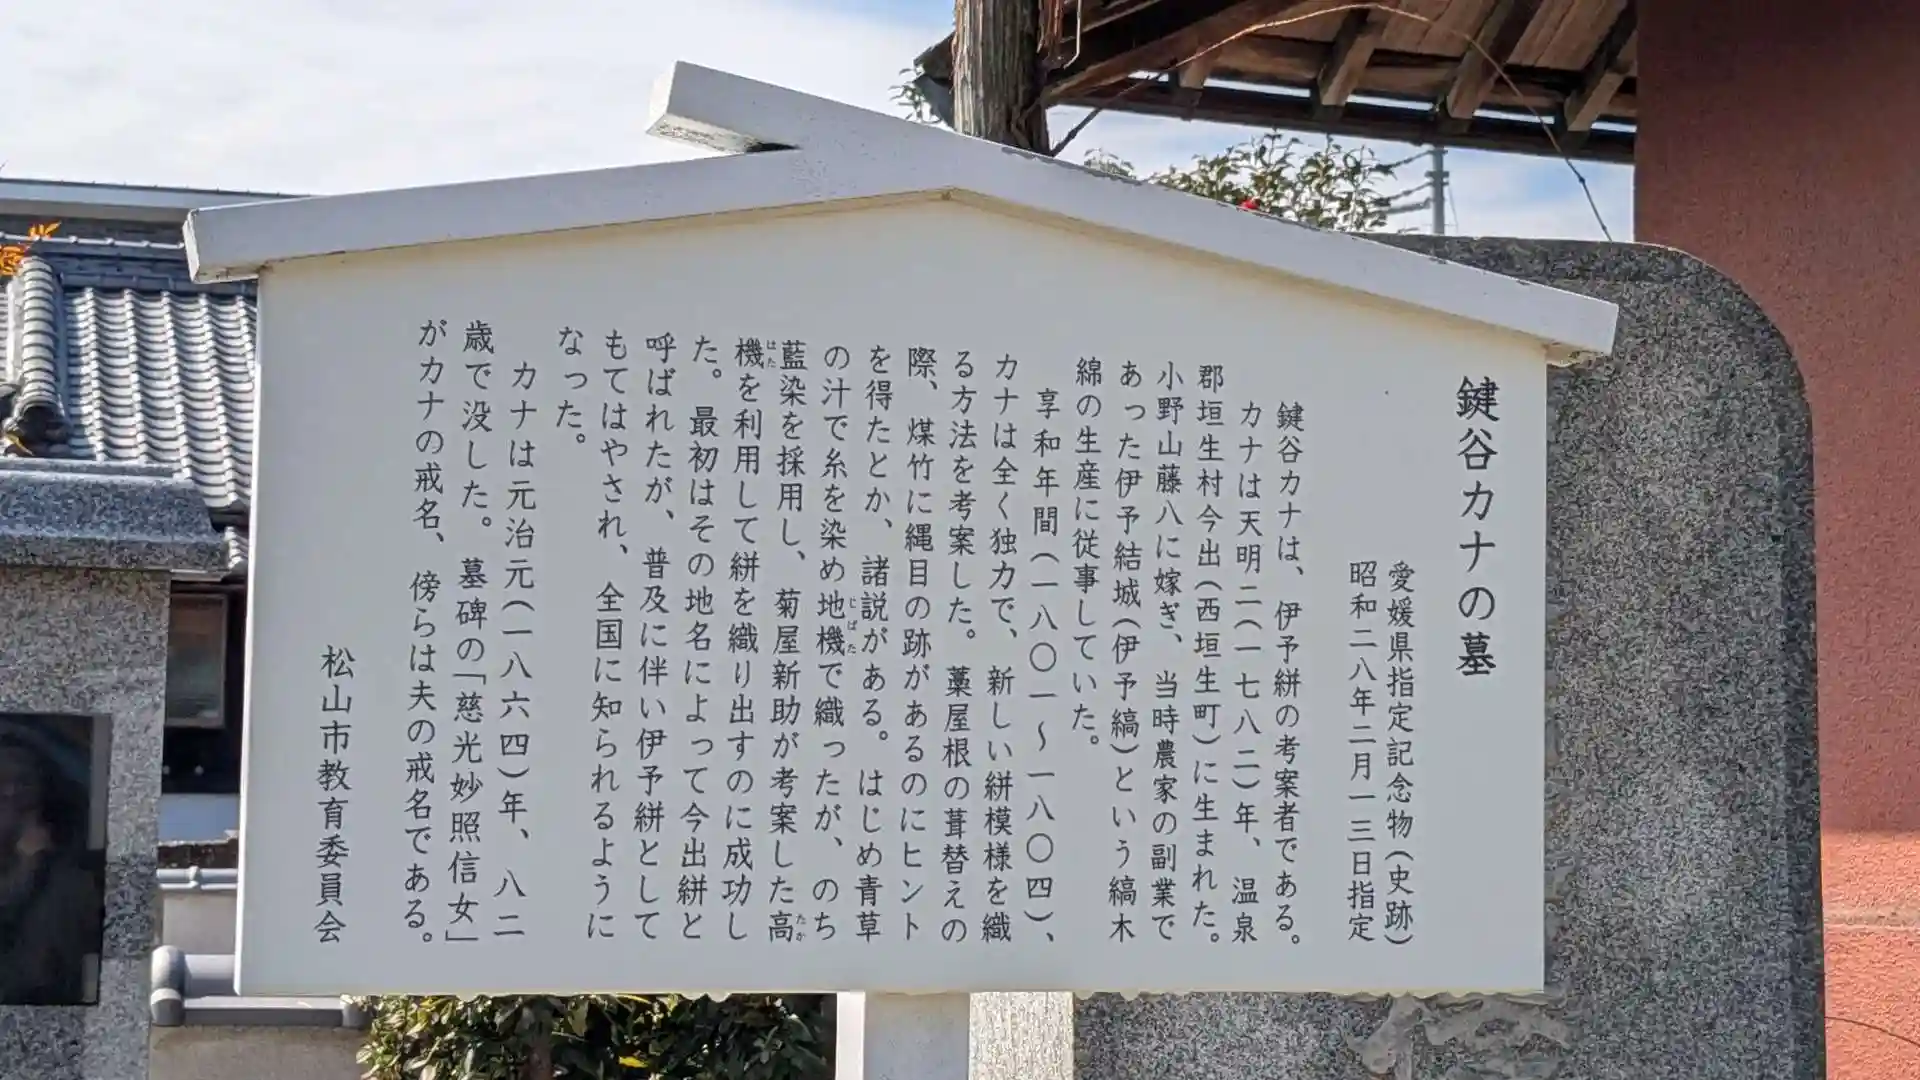 鍵谷カナの墓
愛媛県指定記念物(史跡)
昭和二八年二月一三日指定
鍵谷カナは、伊予絣の考案者である。
カナは天明二(一七八二)年、温泉
郡垣生村今出(西垣生町)に生まれた。
小野山藤八に嫁ぎ、当時農家の副業で
あった伊予結城(伊予縞)という縞木
綿の生産に従事していた。
享和年間(一八〇一〜一八〇四)、
カナは全く独力で、新しい絣模様を織
る方法を考案した。藁屋根の葺替えの
際、煤竹に縄目の跡があるのにヒント
を得たとか、諸説がある。はじめ青草
の汁で糸を染め地機で織ったが、のち
藍染を採用し、菊屋新助が考案した高
機を利用して絣を織り出すのに成功し
た。最初はその地名によって今出絣と
呼ばれたが、普及に伴い伊予絣として
もてはやされ、全国に知られるように
なった。
カナは元治元(一八六四)年、八二
歳で没した。墓碑の「慈光妙照信女」
がカナの戒名、傍らは夫の戒名である。
松山市教育委員会